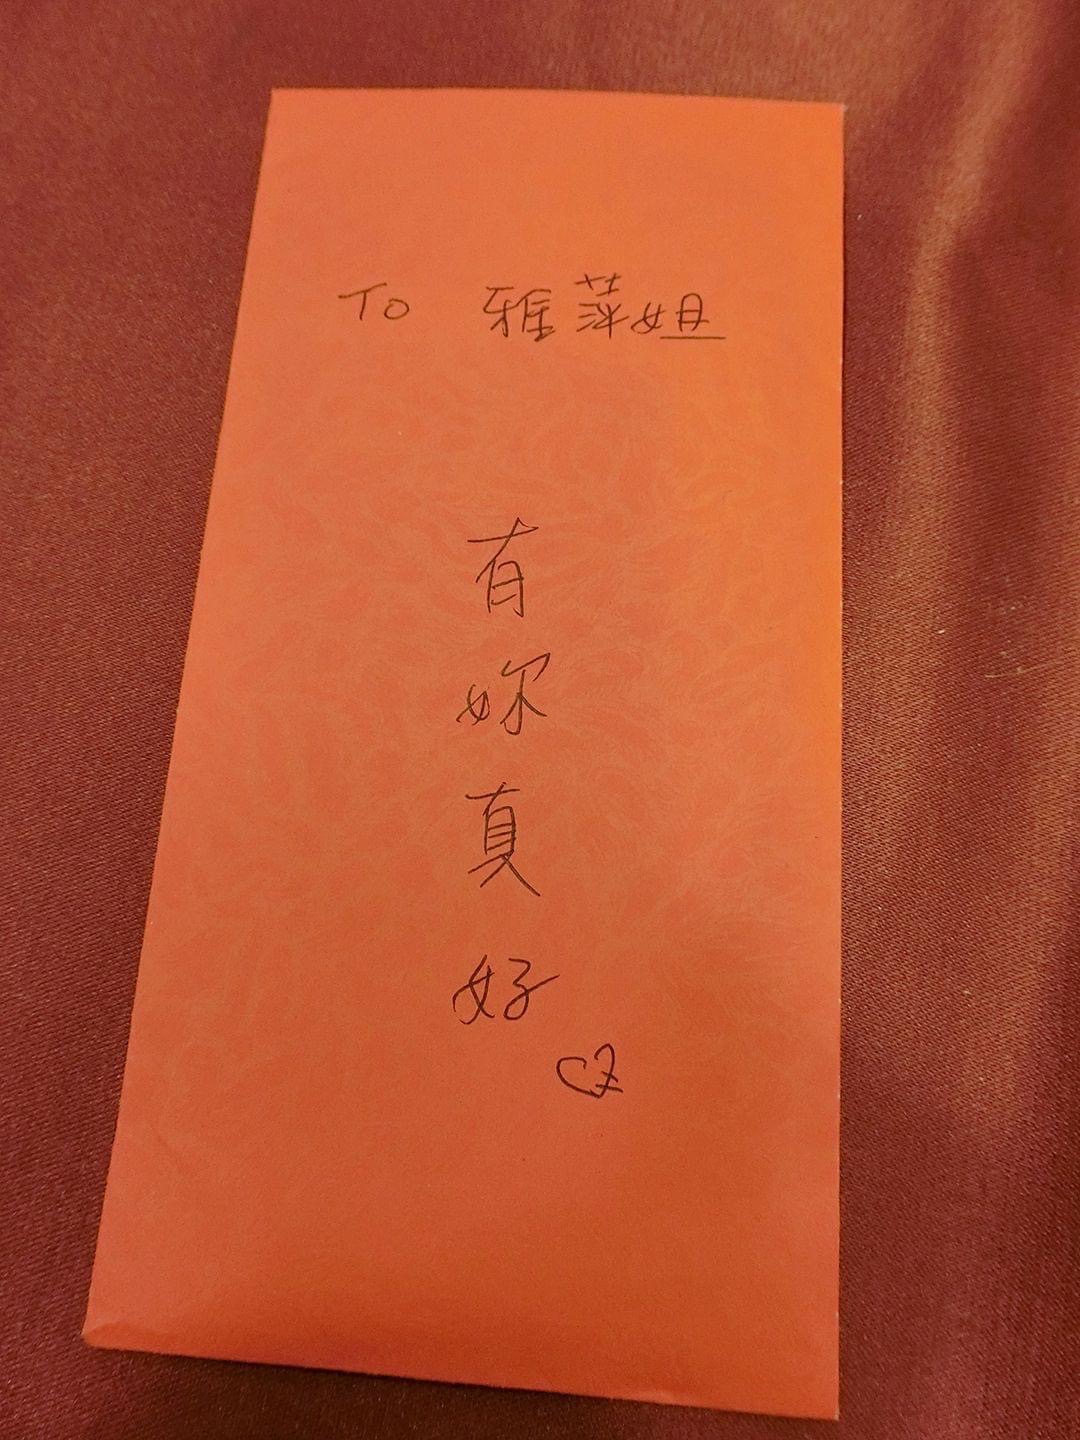 To 雅萍姐
有
妳
真
好